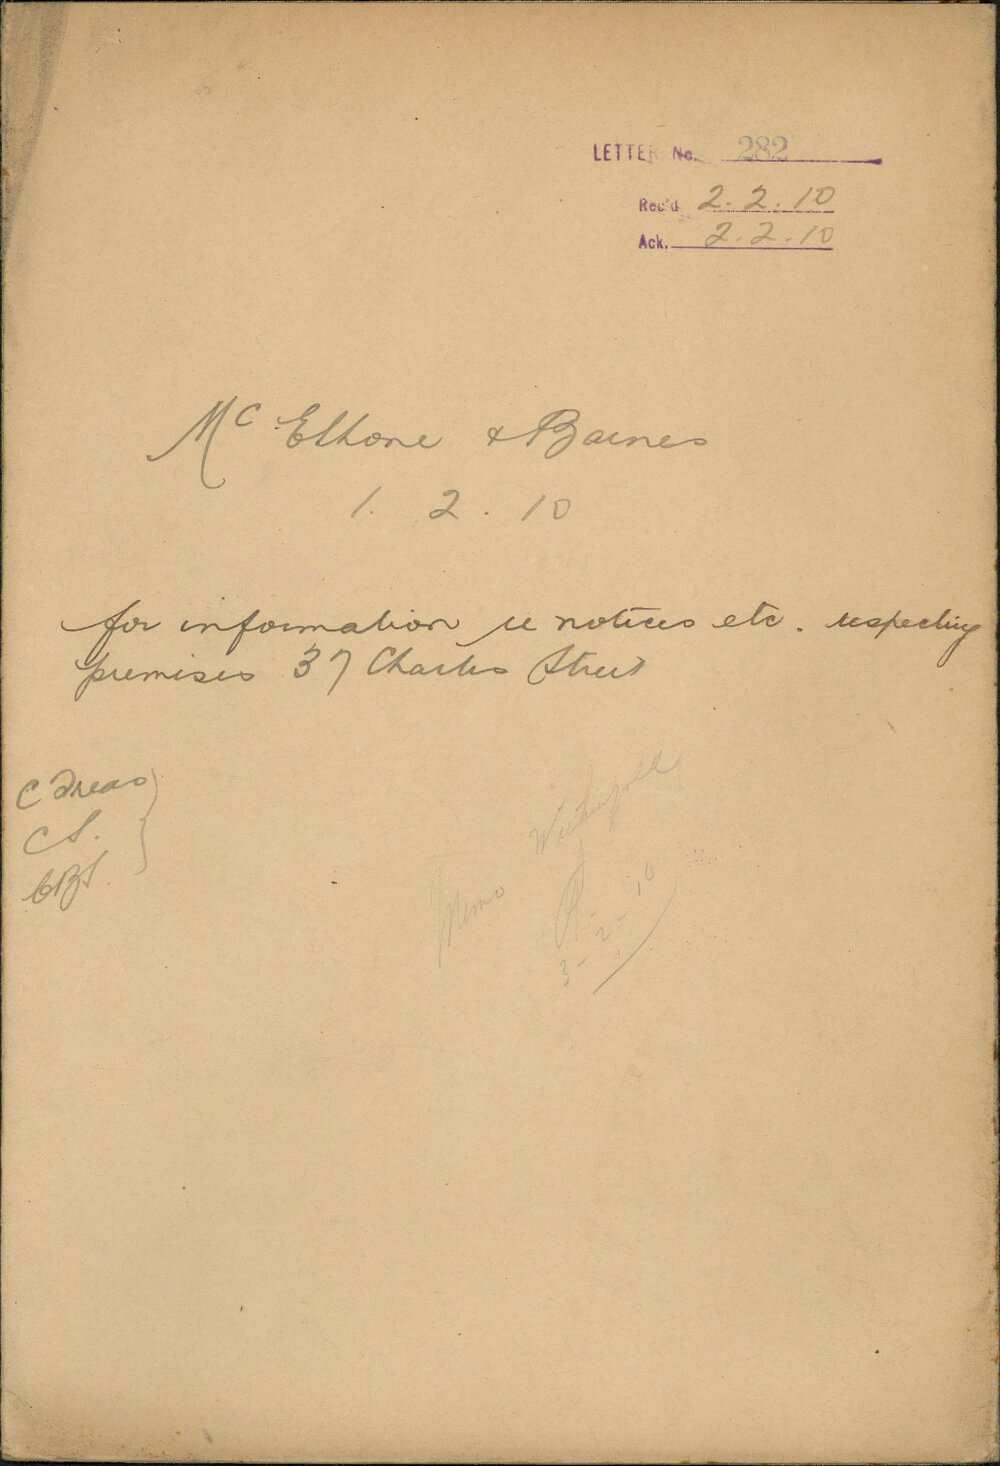 LETTER No. 282
Rec'd 2.2.10
Ack. 2.2.10
Mc Elhone & Barnes
1. 2. 10
for information re notices etc. respecting
premises 37 Charles Street
C Treas
CS.
CBS
Memo
3-2-10